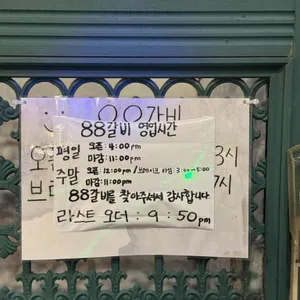 88갈비
88갈비 영업시간
평일 오픈: 4:00pm
마감: 11:00pm
주말 오픈: 12:00pm / 브레이크 타임: 3:00~5:00
마감: 11:00pm
88갈비를 찾아주셔서 감사합니다
라스트 오더 : 9 : 50pm
3시
7시